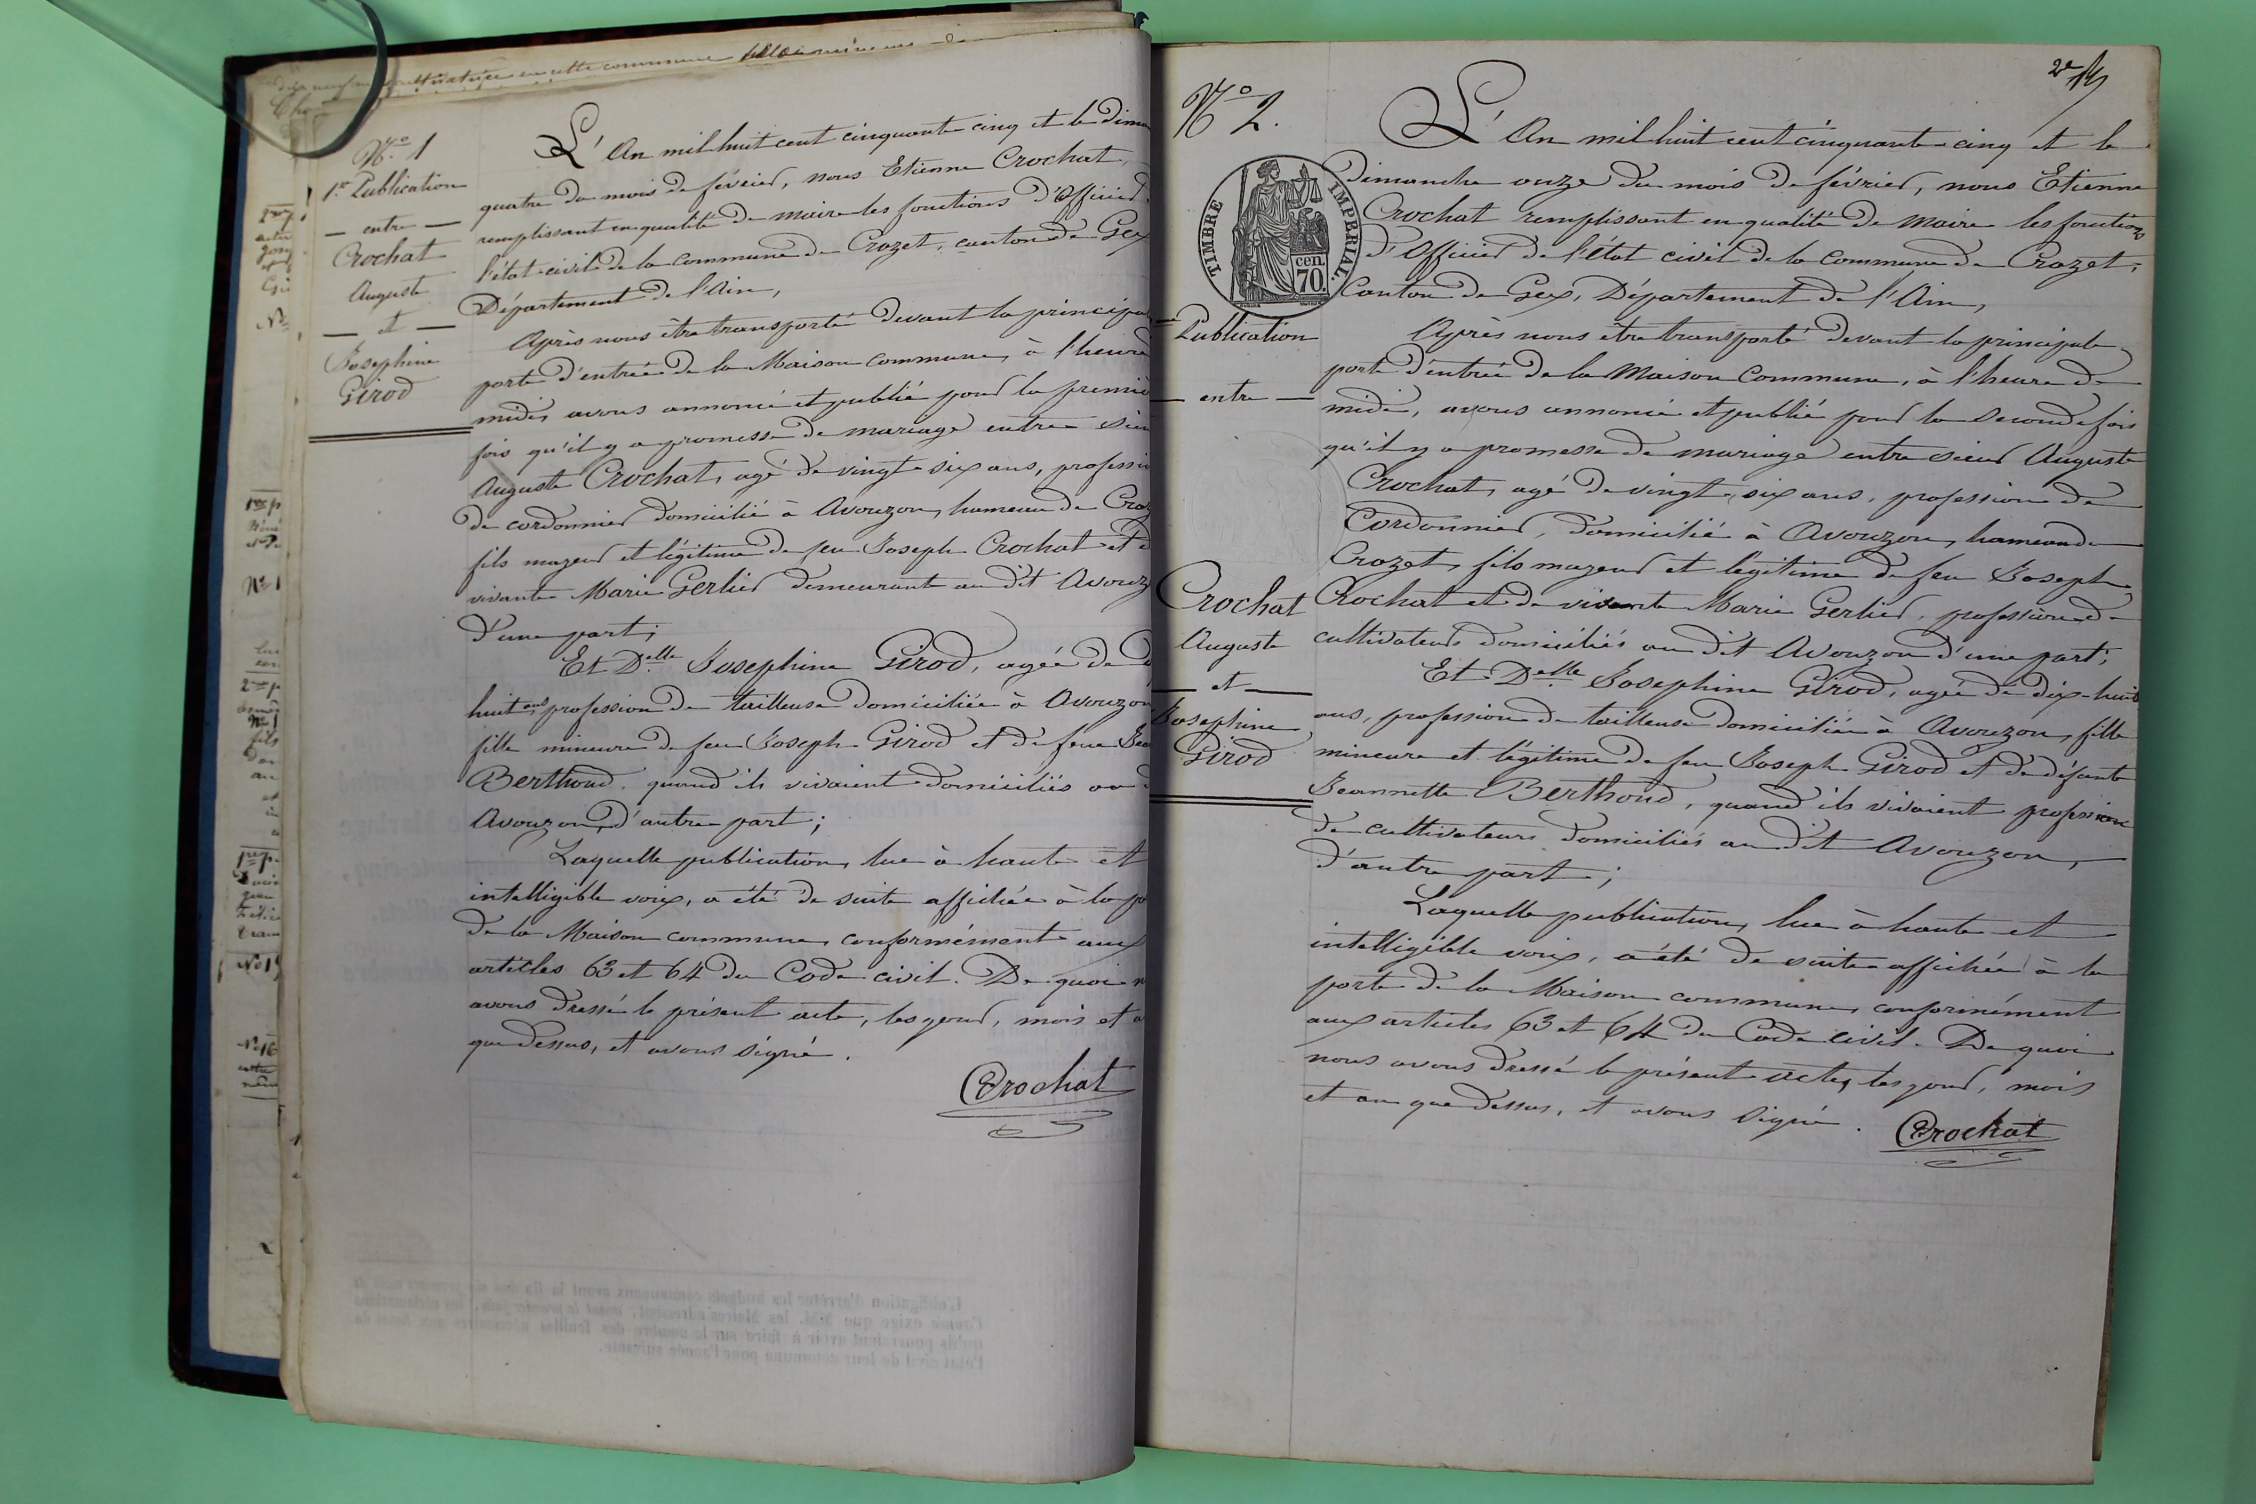 N.o 1
1.re Publication
entre
Crochat
Auguste
et
Josephine
Girod
L'An mil huit cent cinquante cinq et le
quatre du mois de février, nous Etienne Crochat,
remplissant en qualité de maire les fonctions d'Officier
l'état-civil de la commune de Crozet, canton de Gex
Département de l'Ain,
Après nous être transporté devant la
porte d'entrée de la Maison commune, à l'heure
midi, avons annoncé et publié pour la
fois qu'il y a promesse de mariage entre
Auguste Crochat, agé de vingt-six ans,
de cordonnier domicilié à Avouzon, hameau de
fils majeur et légitime de feu Joseph Crochat et
vivante Marie Gerlier demeurant au dit
d'une part;
Et D.elle Josephine Girod, agée de
huit ans profession de tailleuse domiciliée à Avouzon
fille mineure de feu Joseph Girod et de feue
Berthoud, quand ils vivaient domiciliés au
Avouzon, d'autre part;
Laquelle publication, lue à haute et
intelligible voix, a été de suite affichée à la
de la Maison commune, conformément aux
articles 63 et 64 du Code civil. De quoi
avons dressé le présent acte, les jour, mois et
que dessus, et avons signé.
Crochat
2e
N.o 2.
TIMBRE IMPERIAL.
cen.
70.
Publication
entre
Crochat
Auguste
et
Josephine
Girod
L'An mil huit cent cinquante-cinq et le
dimanche onze du mois de février, nous Etienne
Crochat remplissant en qualité de Maire les fonctions
d'Officier de l'état civil de la Commune de Crozet,
Canton de Gex, Département de l'Ain,
Après nous être transporté devant la principale
porte d'entrée de la Maison Commune, à l'heure de
midi, avons annoncé et publié pour la seconde fois
qu'il y a promesse de mariage entre sieur Auguste
Crochat, agé de vingt-six ans, profession de
Cordonnier, domicilié à Avouzon, hameau de
Crozet, fils majeur et légitime de feu Joseph
Crochat et de vivante Marie Gerlier, profession de
cultivateurs domiciliés au dit Avouzon d'une part;
Et D.elle Josephine Girod, agée de dix-huit
ans, profession de tailleuse domiciliée à Avouzon, fille
mineure et légitime de feu Joseph Girod et de défunte
Jeannette Berthoud, quand ils vivaient profession
de cultivateurs domiciliés au dit Avouzon,
d'autre part;
Laquelle publication, lue à haute et
intelligible voix, a été de suite affichée à la
porte de la Maison commune, conformément
aux articles 63 et 64 du Code civil. De quoi
nous avons dressé le présent acte, les jour, mois
et an que dessus, et avons signé.
Crochat